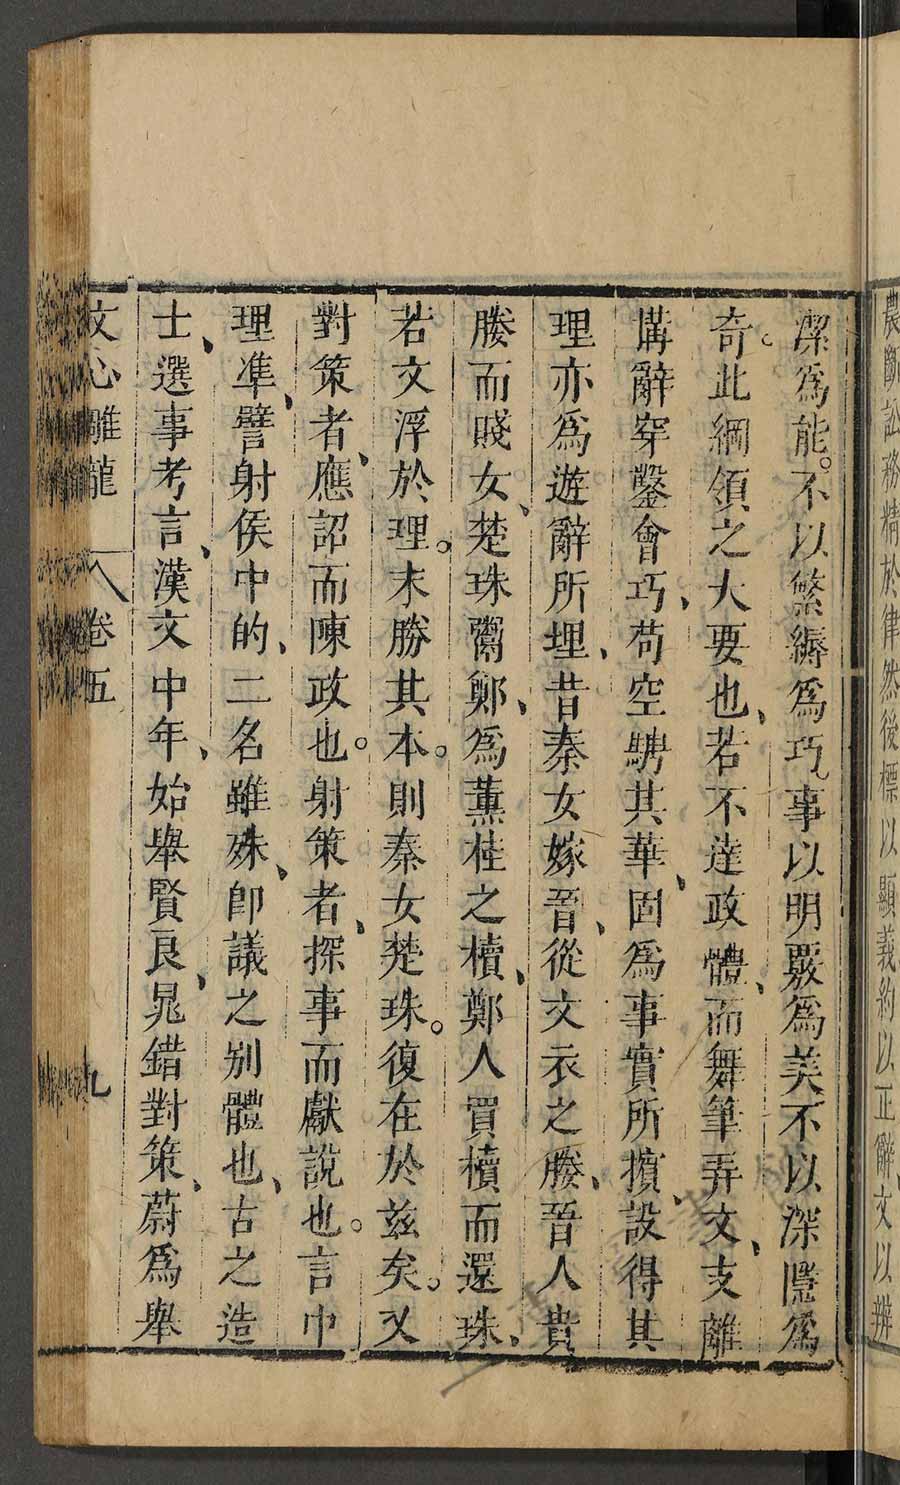 農斷訟務精於律然後標以顯義約以正辭文以辨
潔爲能。不以繁縟爲巧、事以明覈爲美不以深隱爲
奇。此綱領之大要也、若不達政體、而舞筆弄文、支離
構辭穿鑿會巧、苟空騁其華、固爲事實所擯、設得其
理亦爲遊辭所埋、昔秦女嫁晉、從文衣之媵、晉人貴
媵而賤女、楚珠鬻鄭、爲薰桂之櫝、鄭人買櫝而還珠、
若文浮於理。末勝其本。則秦女楚珠。復在於茲矣。又
對策者、應詔而陳政也。射策者、探事而獻說也。言中
理準、譬射侯中的、二名雖殊、即議之別體也、古之造
士、選事考言、漢文中年、始舉賢良、晁錯對策、蔚爲舉
文心雕龍 卷五 九